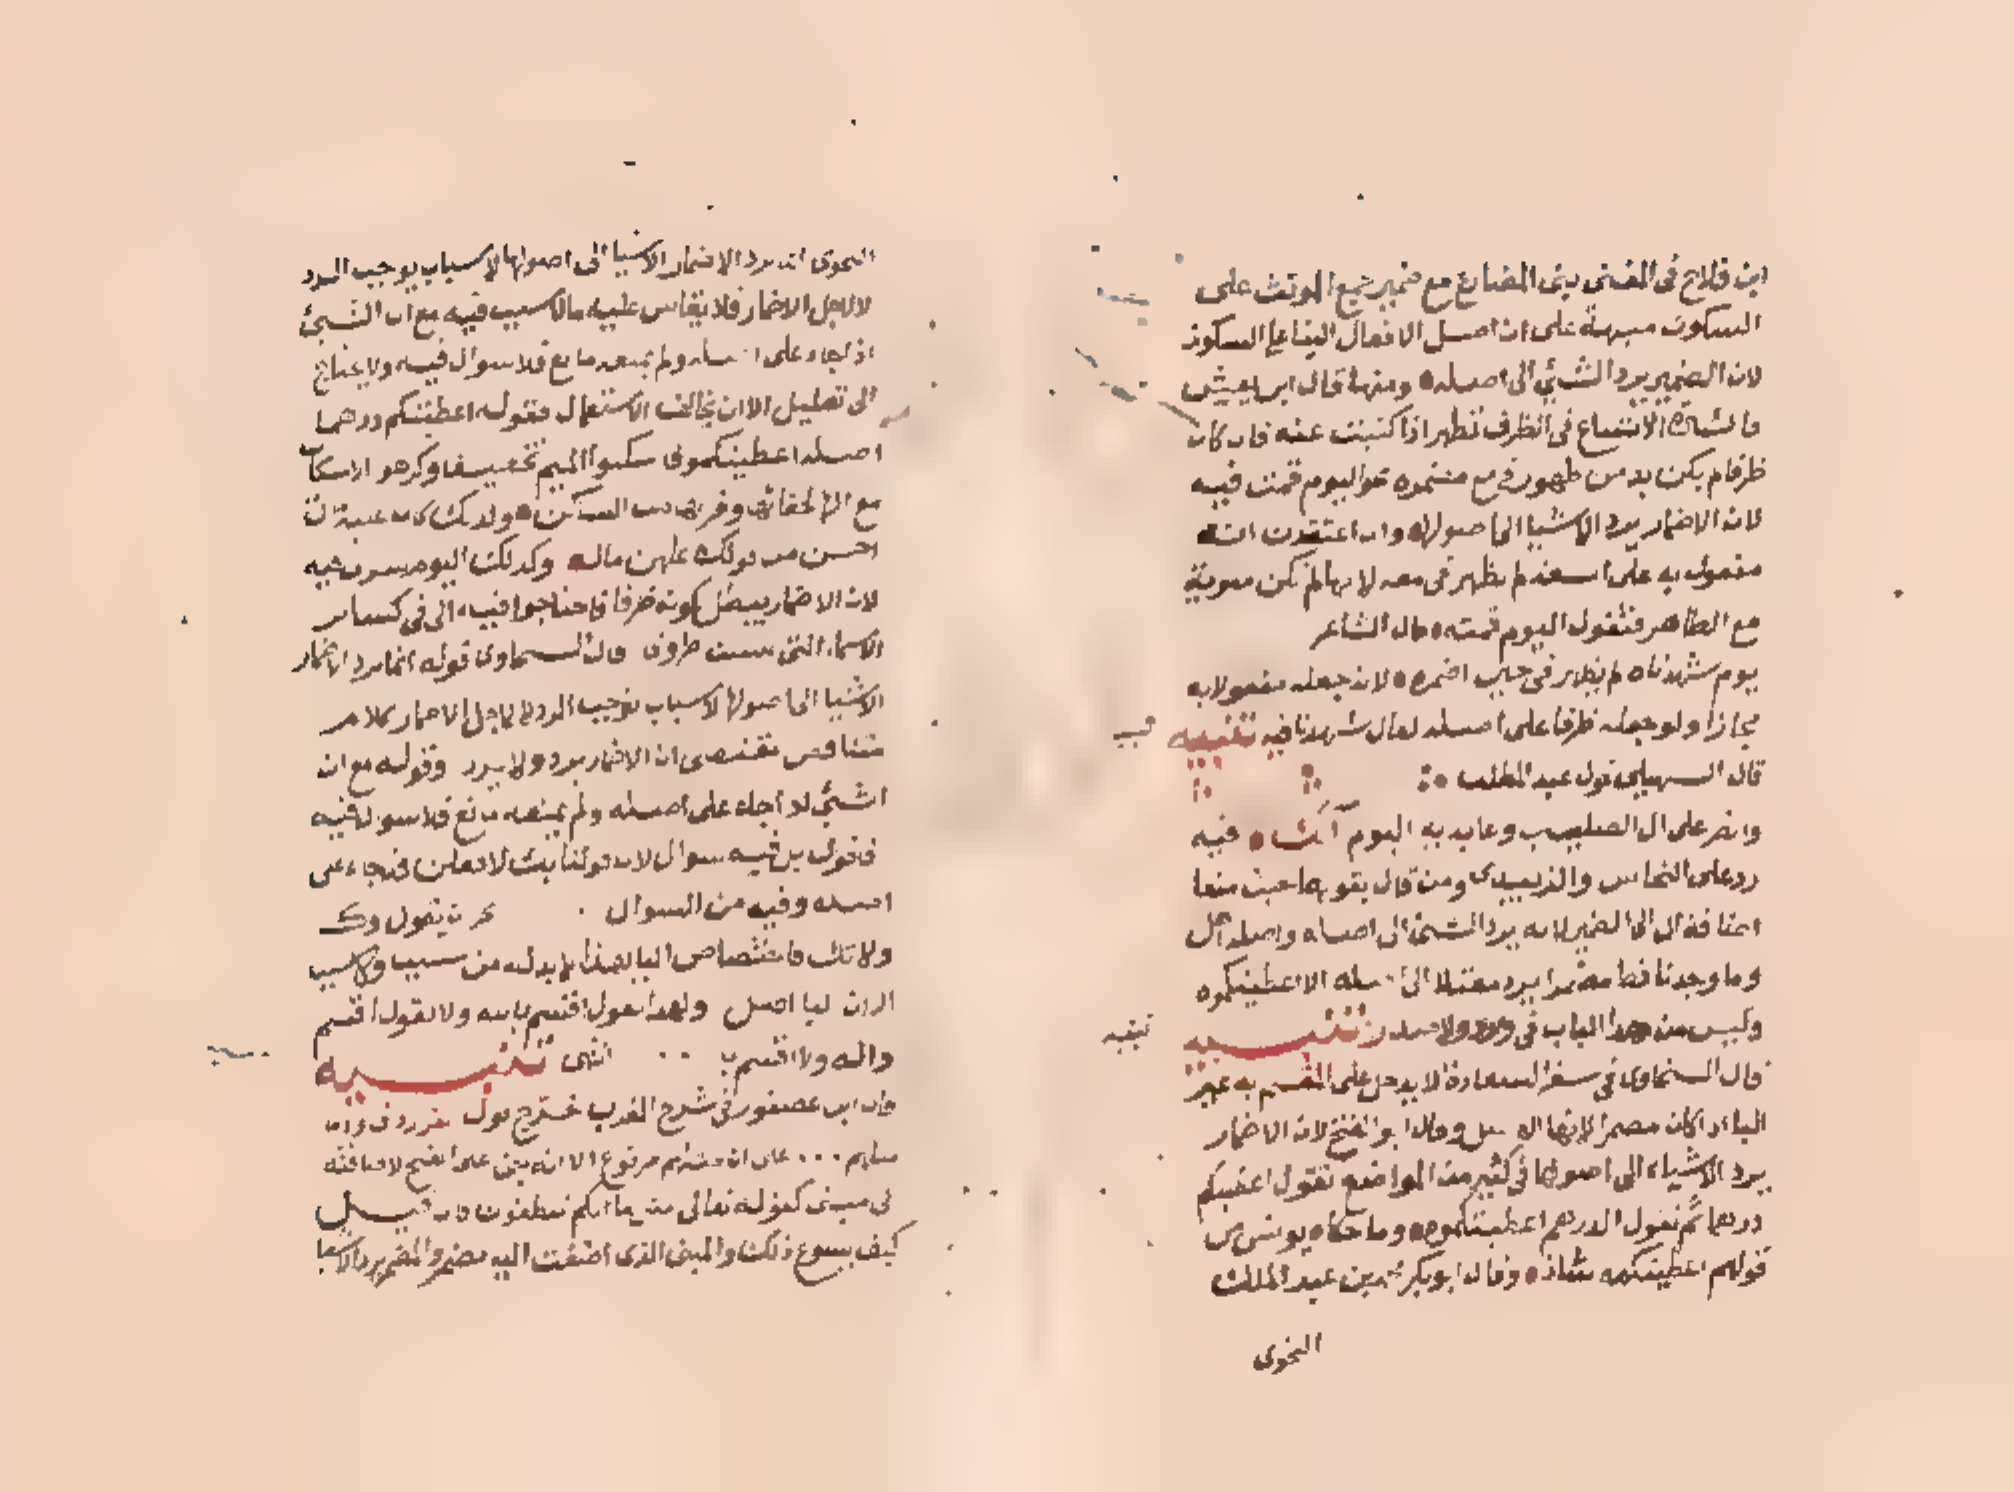 ابن فلاح في المغني بني المضارع مع ضمير جمع المونث على
السكون منبهة على ان اصل الافعال البنا على السكون
لان الضمير يرد الشيئ الى اصله ومنها قال ابن يعيش
الاتساع في الظرف تظهر اذا كنيت عنه فان كان
ظرفا لم يكن بد من ظهور في مع مضمره نحو اليوم قمت فيه
لان الاضمار يرد الاشيا الى اصولها وان اعتقدت انه
مفعول به على السعة لم يظهر في معه لانها لم تكن منوية
مع الظاهر فتقول اليوم قمته قال الشاعر
يوم شهدناه لم يظهر في حين اضمره لانه جعله مفعولا به
مجازا ولو جعله ظرفا على اصله لقال شهدنا فيه تنبيه
قال السهيلي قول عبد المطلب
وانصر على ال الصليب وعابديه اليوم آلك فيه
رد على النحاس والزبيدي ومن قال بقولهما حيث منعا
اضافة ال الى الضمير لانه يرد الشيئ الى اصله واصله اهل
وما وجدنا قط مضمرا يرد معتلا الى اصله الا اعطيتكموه
وليس من هذا الباب في ورد ولا صدر تنبيه
قال السخاوي في سفر السعادة لا يدخل على المقسم به غير
الباء اذا كان مضمرا لانها الاصل وقال ابو الفتح لان الاضمار
يرد الاشياء الى اصولها في كثير من المواضع تقول اعطيتكم
درهما ثم تقول الدرهم اعطيتكموه وما حكاه يونس من
قولهم اعطيتكمه شاذ وقال ابو بكر محمد بن عبد الملك
النحوي
النحوي انه يرد الاضمار الاشيا الى اصولها لاسباب يوجب الرد
لا لاجل الاضمار فلا يقاس عليه ما لا سبب فيه مع ان الشيئ
اذا جاء على اصله ولم يمنعه مانع فلا سوال فيه ولا يحتاج
الى تعليل الا ان يخالف الاستعمال فقوله اعطيتكم درهما
اصله اعطيتكمو سكنوا الميم تخفيفا وكرهو الاسكان
مع الها لخفائها وقربها من الساكن ولذلك كان
احسن من قولك عليهن مال وكذلك اليوم سرت فيه
لان الاضمار يبطل كونه ظرفا فاحتاجوا فيه الى في كساير
الاسماء التي ليست ظروف قال السخاوي قوله انما يرد الاضمار
الاشيا الى اصولها لاسباب توجب الرد لا لاجل الاضمار كلام
متناقض يقتضي ان الاضمار يرد ولا يرد وقوله مع ان
الشيئ اذا جاء على اصله ولم يمنعه مانع فلا سوال فيه
فاقول بل فيه سوال لان قولنا بك لافعلن قد جاء على
اصله وفيه من السوال يقول وك
ولا تك فاختصاص الباء بهذا لا بد له من سبب ولا سبب
الا ان الباء اصل ولهذا تقول اقسم بالله ولا تقول اقسم
والله ولا اقسم ب انتهى تنبيه
قال ابن عصفور في شرح المقرب خرج قول الفرزدق واذ ما
مثلهم على ان مثلهم مرفوع الا انه بني على الفتح لاضافته
الى مبني كقوله تعالى مثل ما انكم تنطقون فان قيل
كيف يسوغ ذلك والمبني الذي اضفت اليه مضمر والمضمر يرد الاشيا
تنبيه